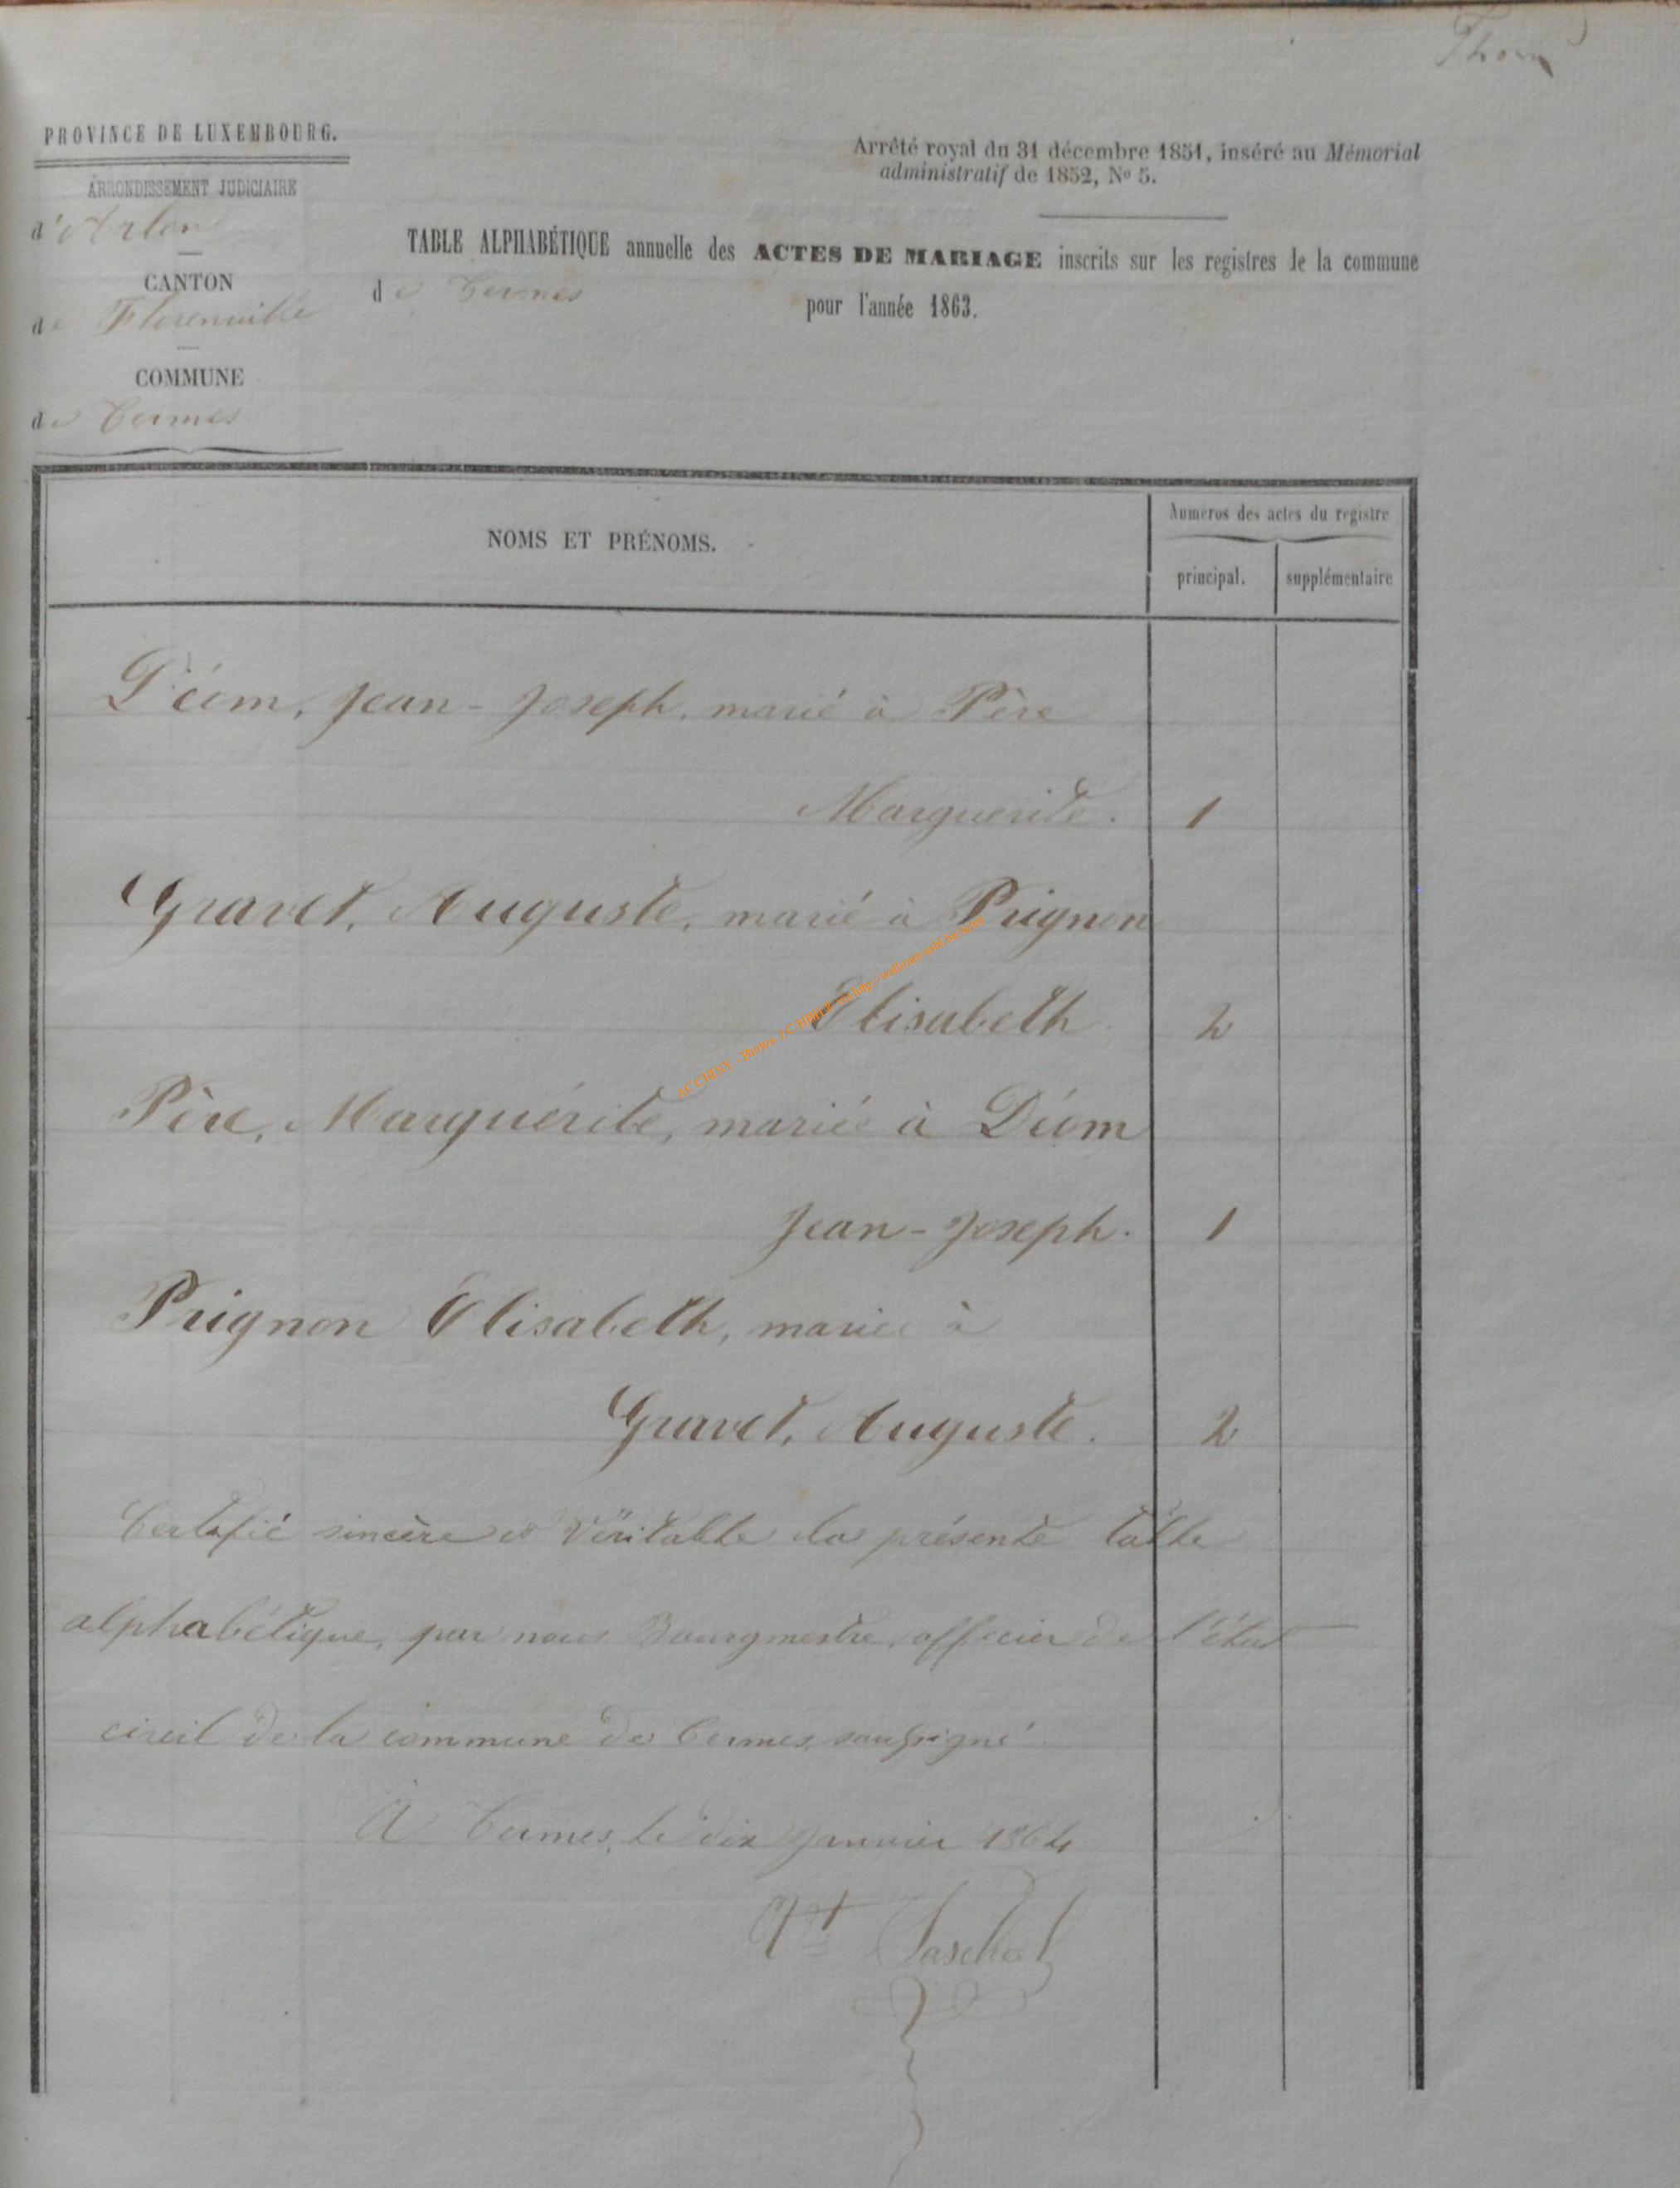 PROVINCE DE LUXEMBOURG.
ARRONDISSEMENT JUDICIAIRE
d'Arlon
CANTON
de Florenville
COMMUNE
de Termes
Arrêté royal du 31 décembre 1851, inséré au Mémorial
administratif de 1852, No 5.
TABLE ALPHABÉTIQUE annuelle des ACTES DE MARIAGE inscrits sur les registres de la commune
de Termes pour l'année 1863.
NOMS ET PRÉNOMS.
Numéros des actes du registre
principal. supplémentaire
Déom, Jean-Joseph, marié à Père
Marguerite. 1
Gravet, Auguste, marié à Prignon
Elisabeth. 2
Père, Marguérite, mariée à Déom
Jean-Joseph. 1
Prignon Élisabeth, mariée à
Gravet, Auguste. 2
Certifié sincère et véritable la présente table
alphabétique, par nous Bourgmestre, officier de l'état
civil de la commune de Termes, soussigné
A Termes, le dix Janvier 1864